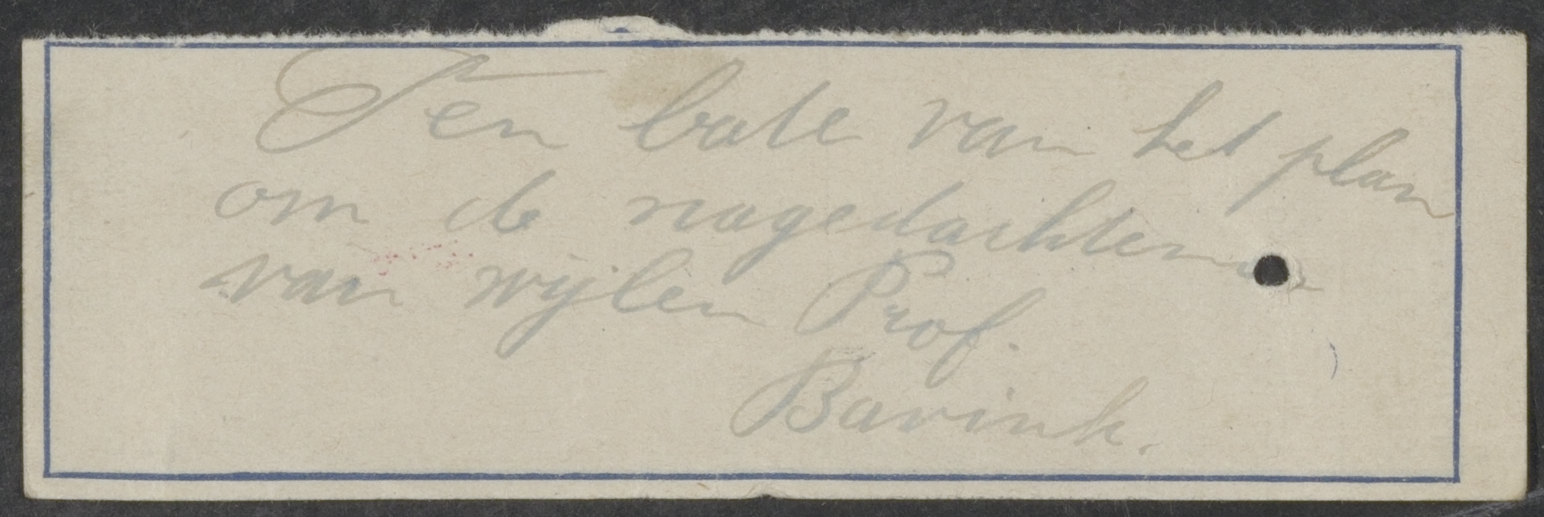 Ten bate van het plan
om de nagedachtenis
van wijlen Prof.
Bavink.